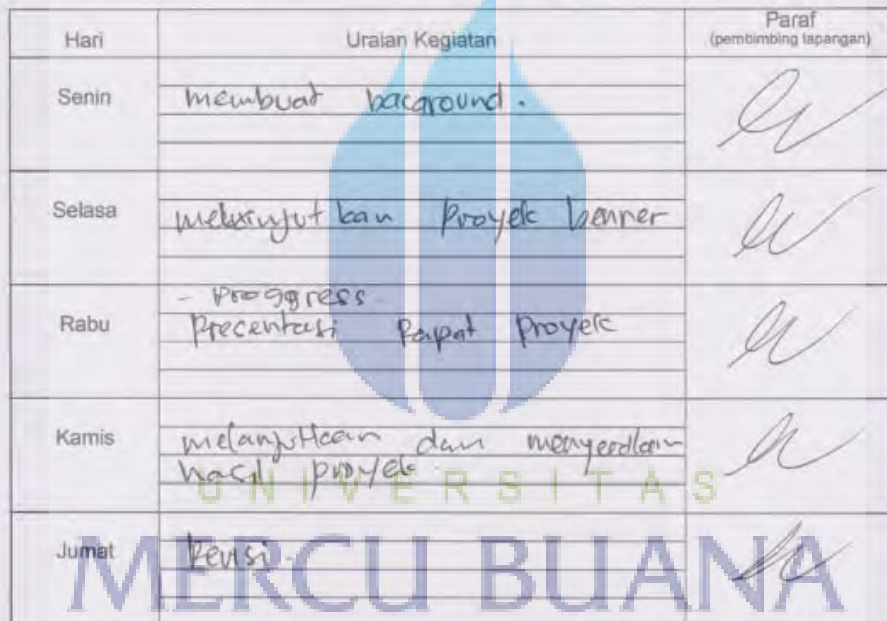 Hari Uraian Kegiatan Paraf
(pembimbing lapangan)
Senin membuat bacground.
Selasa melanjutkan Proyek benner
- Proggress
Rabu Precentasi Rapat Proyek
Kamis melanjutkaan dan menyerahkan
hasil proyek.
UNIVERSITAS
Jumat Revisi.
MERCU BUANA